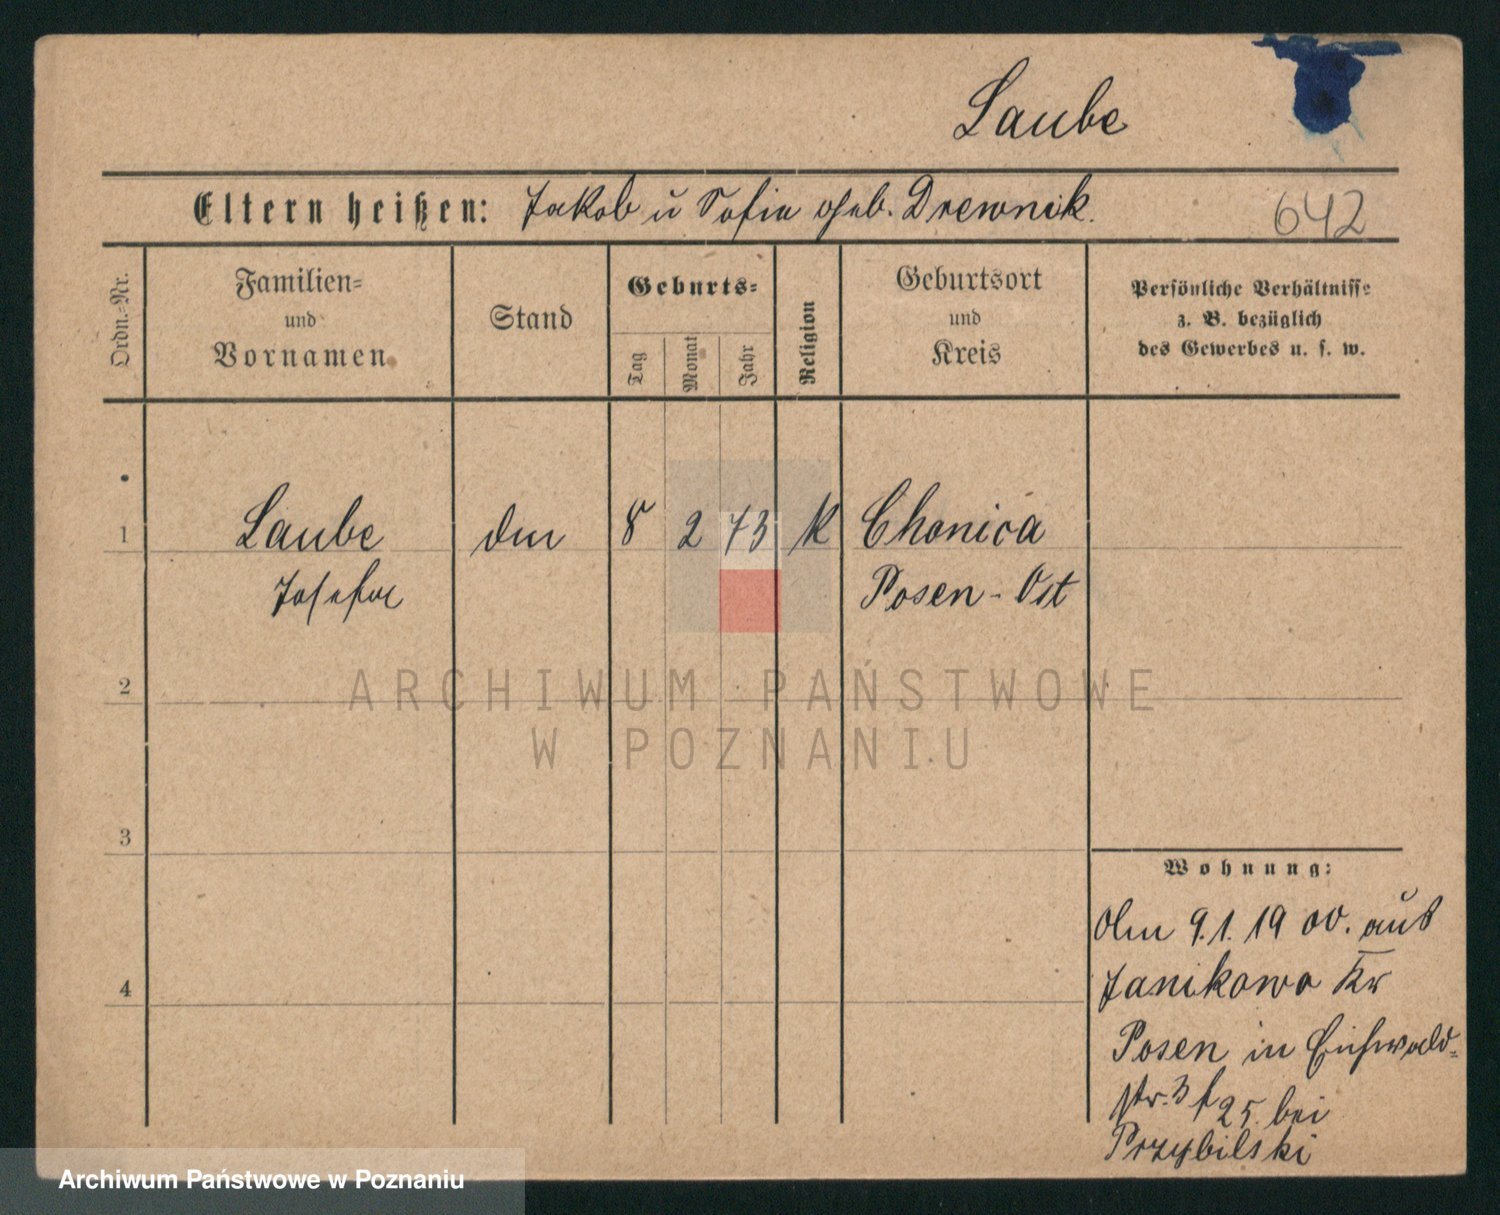 Laube
Eltern heißen: Jakob u Sofia geb. Drewnik.
642
Ordn.-Nr.
Familien- und Vornamen
Stand
Geburts-
Tag
Monat
Jahr
Religion
Geburtsort und Kreis
Persönliche Verhältnisse
z. B. bezüglich
des Gewerbes u. s. w.
1 Laube 8 2 73 k Chonica
Josefa Posen-Ost
ARCHIWUM PAŃSTWOWE
W POZNANIU
2
3
4
Wohnung:
Am 9.1.1900. aus
Janikowo Kr
Posen in Eichwald-
str. 25. bei
Przybilski
Archiwum Państwowe w Poznaniu